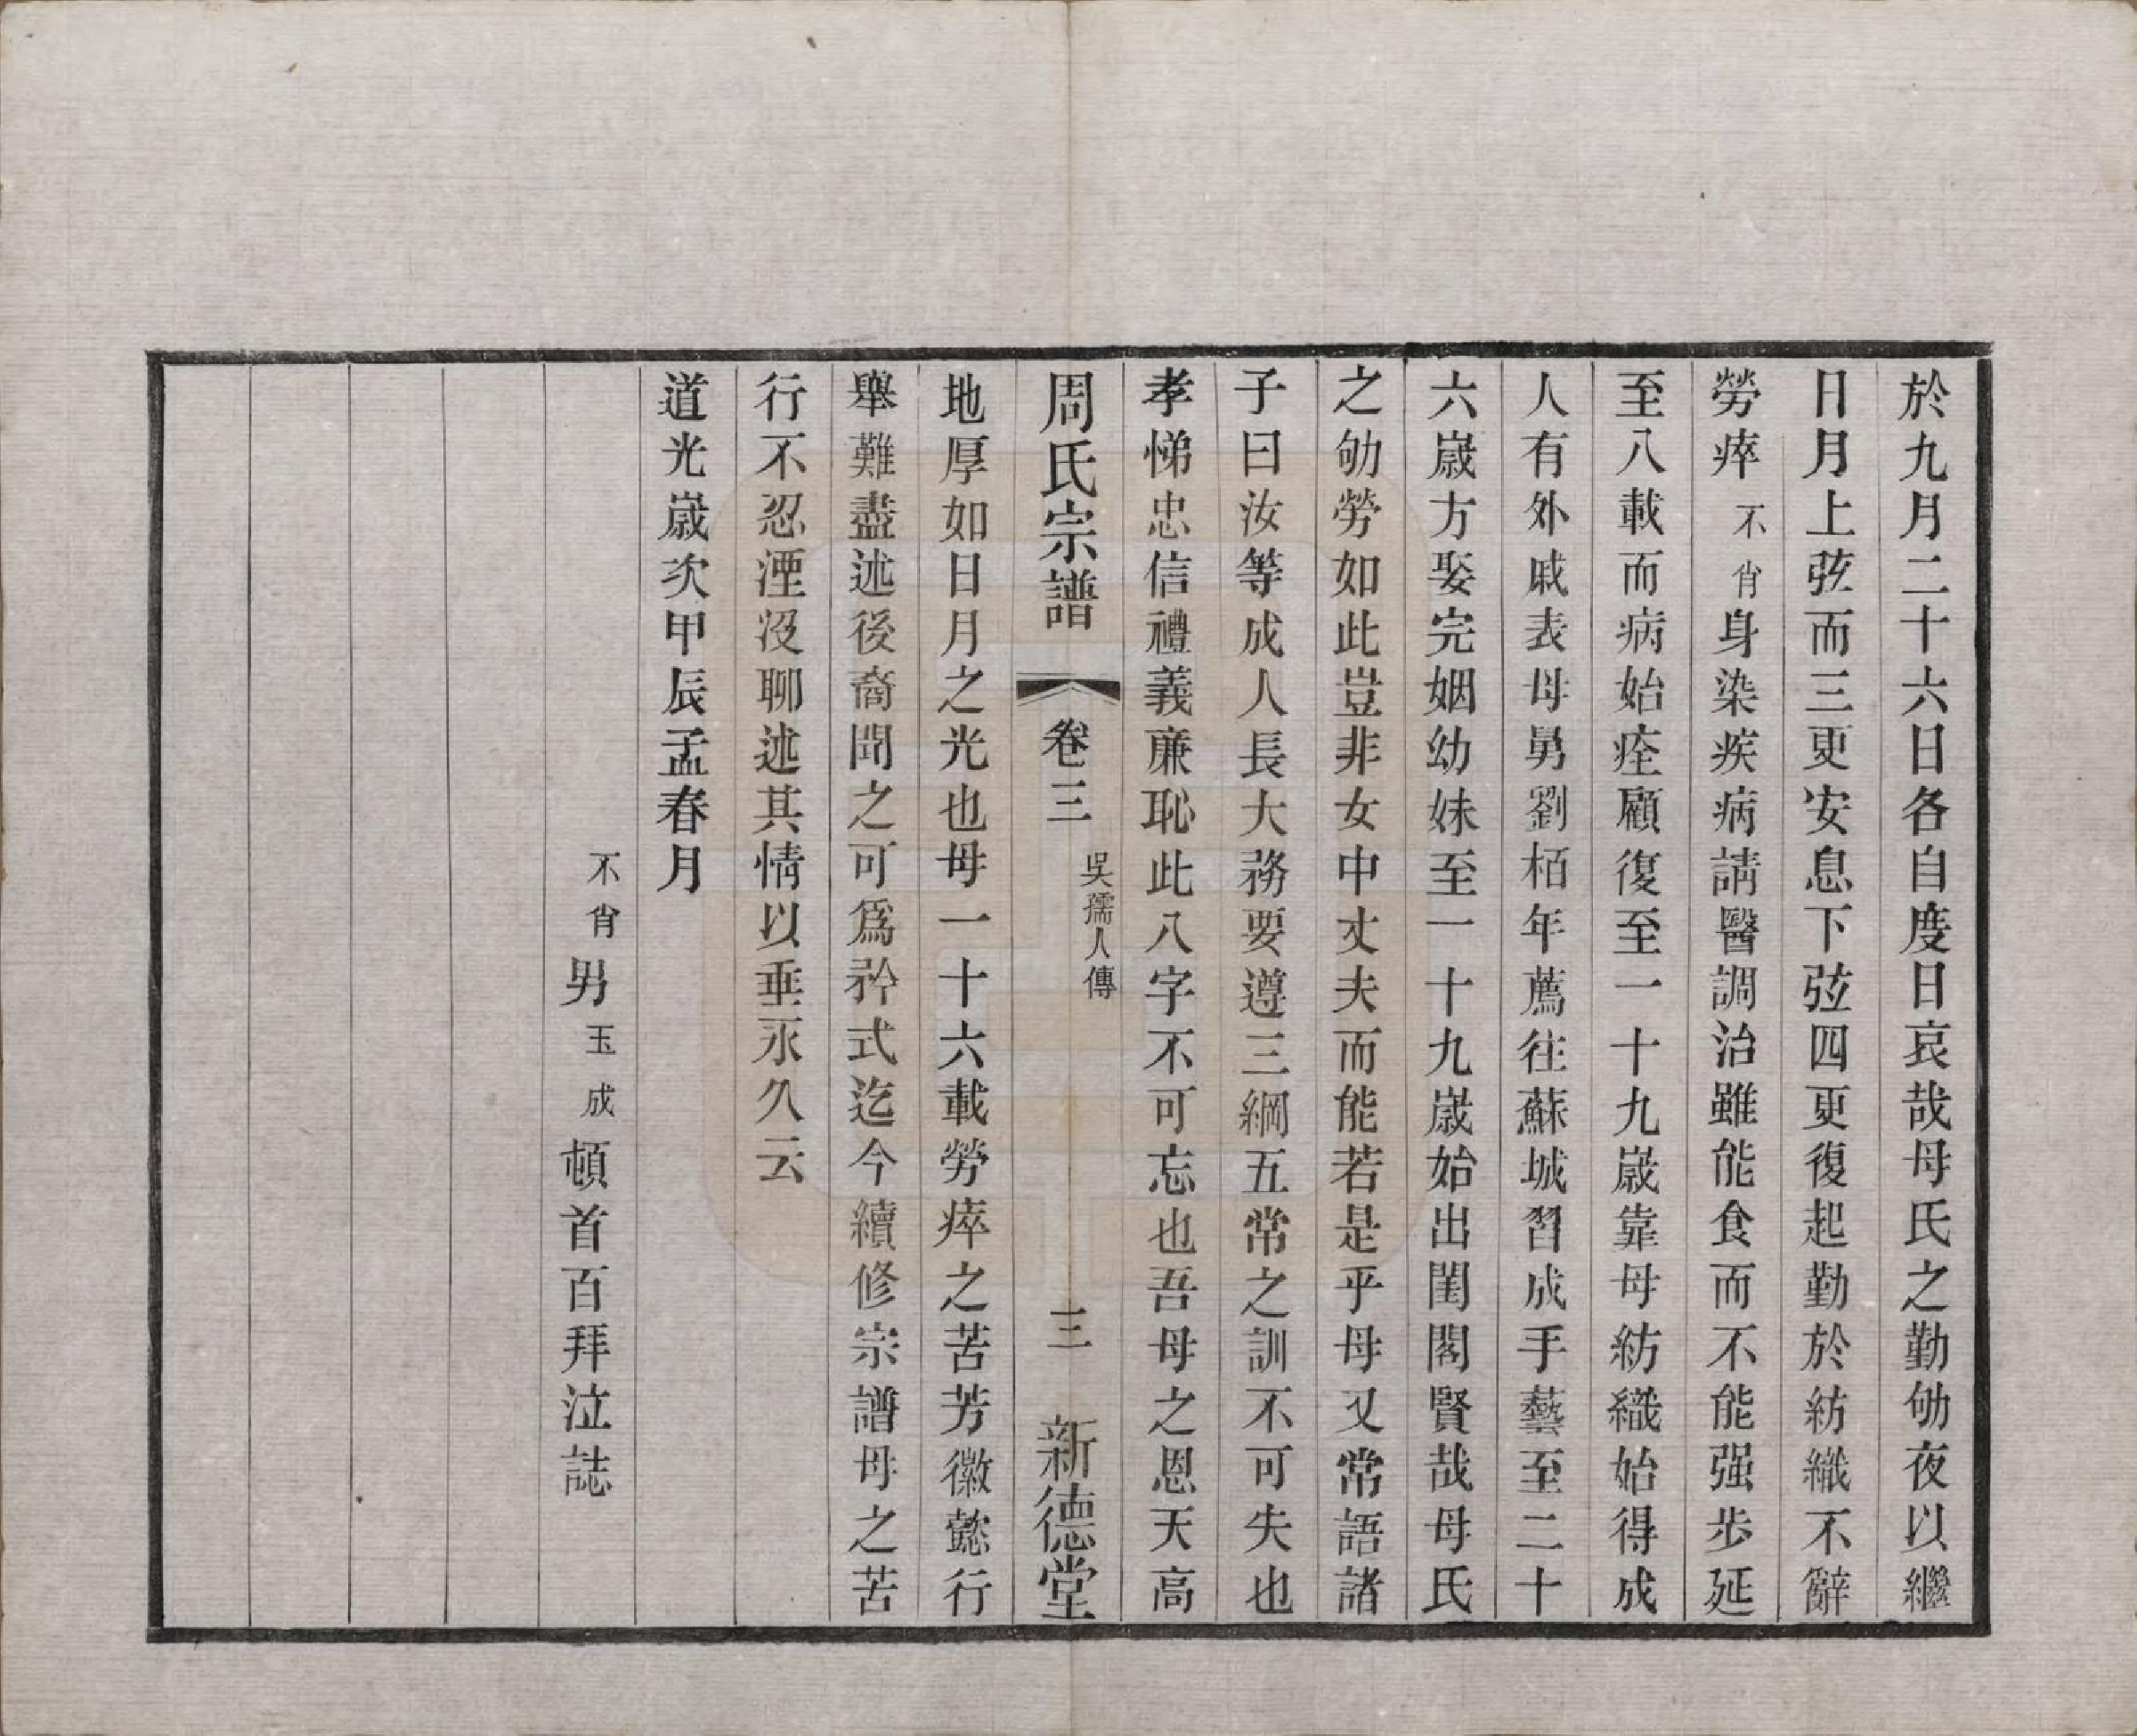 於九月二十六日各自度日哀哉母氏之勤劬夜以繼
日月上弦而三更安息下弦四更復起勤於紡織不辭
勞瘁不肖身染疾病請醫調治雖能食而不能强步延
至八載而病始痊顧復至一十九歲靠母紡織始得成
人有外戚表母舅劉栢年薦往蘇城習成手藝至二十
六歲方娶完姻幼妹至一十九歲始出閨閣賢哉母氏
之劬勞如此豈非女中丈夫而能若是乎母又常語諸
子曰汝等成人長大務要遵三綱五常之訓不可失也
孝悌忠信禮義廉恥此八字不可忘也吾母之恩天高
周氏宗譜 卷三 吳孺人傳 三 新德堂
地厚如日月之光也母一十六載勞瘁之苦芳徽懿行
舉難盡述後裔聞之可爲矜式迄今續修宗譜母之苦
行不忍湮没聊述其情以垂永久云
道光歲次甲辰孟春月
不肖男玉成頓首百拜泣誌